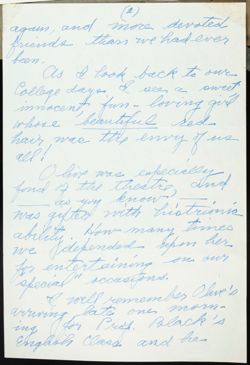 (2)
again, and more devoted
friends than we had ever
been.
As I look back to our
College days, I see a sweet
innocent, fun-loving girl
whose beautiful red
hair was the envy of us
all!
Olive was especially
fond of the theatre, and
— as you know,
was gifted with histrionic
ability. How many times
we depended upon her
for entertaining on our
"special" occasions.
I well remember Olive's
arriving late one morn-
ing for Pres. Black's
English Class and he